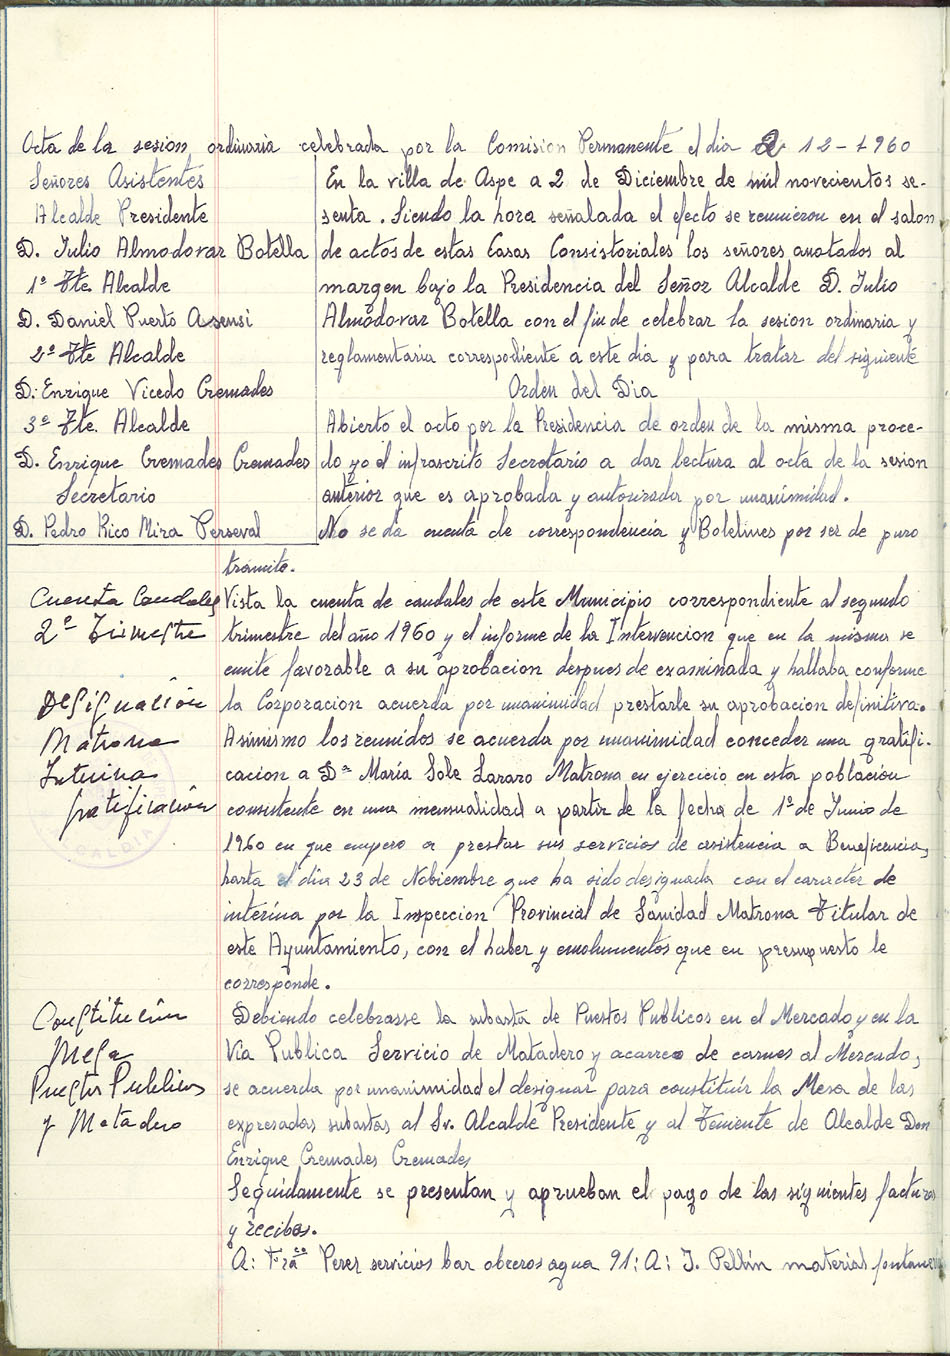 Acta de la sesion ordinaria celebrada por la Comision Permanente el dia 2 12-1960
Señores Asistentes
Alcalde Presidente
D. Julio Almodovar Botella
1º Tte Alcalde
D. Daniel Puerto Asensi
2º Tte Alcalde
D. Enrique Vicedo Cremades
3º Tte. Alcalde
D. Enrique Cremades Cremades
Secretario
D. Pedro Rico Mira Perseval
En la villa de Aspe a 2 de Diciembre de mil novecientos se-
senta. Siendo la hora señalada el efecto se reunieron en el salon
de actos de estas Casas Consistoriales los señores anotados al
margen bajo la Presidencia del Señor Alcalde D. Julio
Almodovar Botella con el fin de celebrar la sesion ordinaria y
reglamentaria correspodiente a este dia y para tratar del siguiente
Orden del Dia
Abierto el acto por la Presidencia de orden de la misma proce-
do yo el infrascrito Secretario a dar lectura al acta de la sesion
anterior que es aprobada y autorizada por unanimidad.
No se da cuenta de correspondencia y Boletines por ser de puro
tramite.
Cuenta Caudales
2º Trimestre
Vista la cuenta de caudales de este Municipio correspondiente al segundo
trimestre del año 1960 y el informe de la Intervencion que en la misma se
emite favorable a su aprobacion despues de examinada y hallaba conforme
la Corporacion acuerda por unanimidad prestarle su aprobacion definitiva.
Designación
Matrona
Interina
gratificación
ALCALDIA
Asimismo los reunidos se acuerda por unanimidad conceder una gratifi-
cacion a Dª María Sole Lazaro Matrona en ejercicio en esta población
consistente en una mensualidad a partir de la fecha de 1º de Junio de
1960 en que empezo a prestar sus servicios de asistencia a Beneficencia,
hasta el dia 23 de Nobiembre que ha sido designada con el caracter de
interina por la Inspeccion Provincial de Sanidad Matrona Titular de
este Ayuntamiento, con el haber y emolumentos que en presupuesto le
corresponde.
Constitución
Mesa
Puestos Publicos
y Matadero
Debiendo celebrasse la subasta de Puestos Publicos en el Mercado y en la
Via Publica Servicio de Matadero y acarreo de carnes al Mercado,
se acuerda por unanimidad el designar para constituir la Mesa de las
expresadas subastas al Sr. Alcalde Presidente y al Teniente de Alcalde Don
Enrique Cremades Cremades
Seguidamente se presentan y aprueban el pago de las siguientes facturas
y recibos.
A: Fracº Perez servicios bar obreros agua 91: A: J. Pellín material